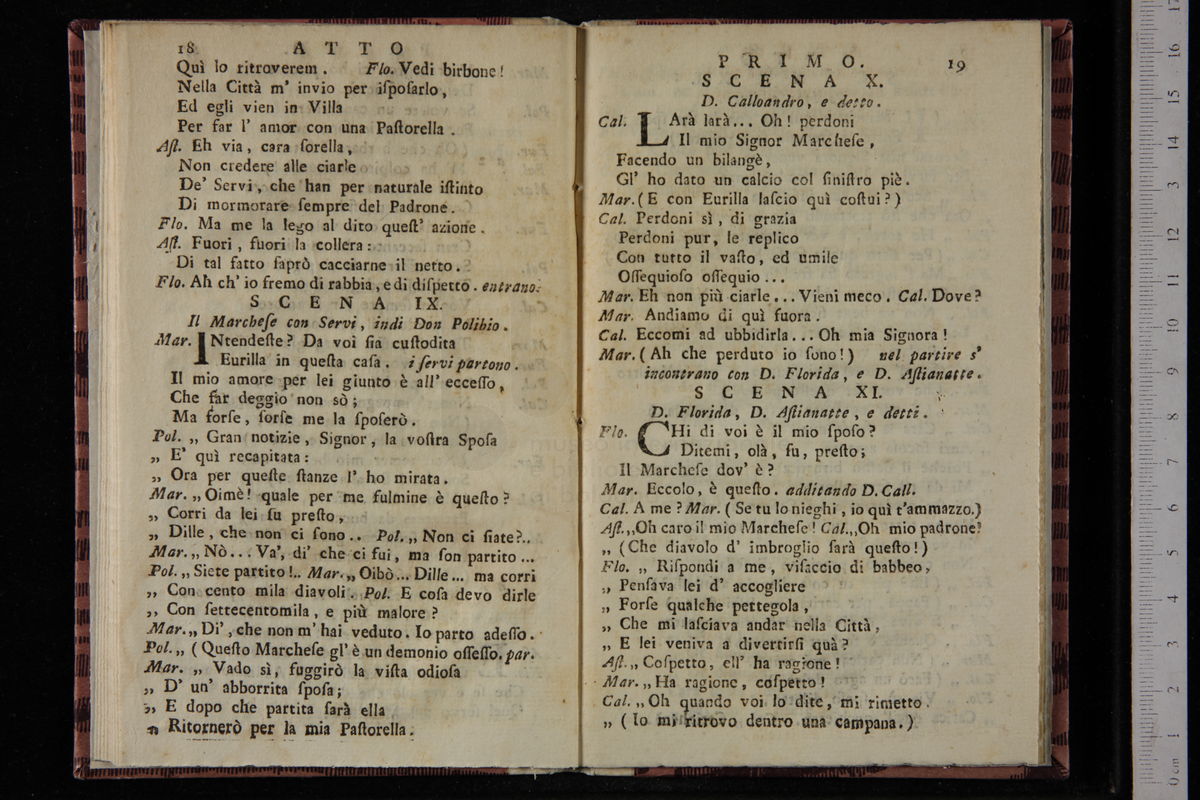 18 A T T O
Quì lo ritroverem . Flo. Vedi birbone!
Nella Città m' invio per iſpoſarlo,
Ed egli vien in Villa
Per far l' amor con una Paſtorella .
Aſt. Eh via, cara ſorella,
Non credere alle ciarle
De' Servi, che han per naturale iſtinto
Di mormorare ſempre del Padrone.
Flo. Ma me la lego al dito queſt' azione.
Aſt. Fuori, fuori la collera:
Di tal fatto ſaprò cacciarne il netto.
Flo. Ah ch' io fremo di rabbia, e di diſpetto. entrano.
S C E N A IX.
Il Marcheſe con Servi, indi Don Polibio.
Mar. INtendeſte? Da voi ſia cuſtodita
Eurilla in queſta caſa. i ſervi partono.
Il mio amore per lei giunto è all' ecceſſo,
Che far deggio non sò;
Ma forſe, forſe me la ſpoſerò.
Pol. „ Gran notizie, Signor, la voſtra Spoſa
„ E' quì recapitata:
„ Ora per queſte ſtanze l' ho mirata.
Mar. „ Oimè! quale per me fulmine è queſto?
„ Corri da lei ſu preſto,
„ Dille, che non ci ſono.. Pol. „ Non ci ſiate?..
Mar. „ Nò... Va', di' che ci fui, ma ſon partito...
Pol. „ Siete partito!.. Mar. „ Oibò... Dille... ma corri
„ Con cento mila diavoli. Pol. E coſa devo dirle
„ Con ſettecentomila, e più malore?
Mar. „ Di', che non m' hai veduto. Io parto adeſſo.
Pol. „ (Queſto Marcheſe gl' è un demonio oſſeſſo. par.
Mar. „ Vado sì, fuggirò la viſta odioſa
„ D' un' abborrita ſpoſa;
„ E dopo che partita ſarà ella
„ Ritornerò per la mia Paſtorella.
P R I M O. 19
S C E N A X.
D. Calloandro, e detto.
Cal. LArà larà... Oh! perdoni
Il mio Signor Marcheſe,
Facendo un bilangè,
Gl' ho dato un calcio col ſiniſtro piè.
Mar. (E con Eurilla laſcio quì coſtui?)
Cal. Perdoni sì, di grazia
Perdoni pur, le replico
Con tutto il vaſto, ed umile
Oſſequioſo oſſequio...
Mar. Eh non più ciarle... Vieni meco. Cal. Dove?
Mar. Andiamo di quì fuora.
Cal. Eccomi ad ubbidirla... Oh mia Signora!
Mar. (Ah che perduto io ſono!) nel partire s'
incontrano con D. Florida, e D. Aſtianatte.
S C E N A XI.
D. Florida, D. Aſtianatte, e detti.
Flo. CHi di voi è il mio ſpoſo?
Ditemi, olà, ſu, preſto;
Il Marcheſe dov' è?
Mar. Eccolo, è queſto. additando D. Call.
Cal. A me? Mar. (Se tu lo nieghi, io quì t'ammazzo.)
Aſt. „Oh caro il mio Marcheſe! Cal. „Oh mio padrone!
„ (Che diavolo d' imbroglio ſarà queſto!)
Flo. „ Riſpondi a me, viſaccio di babbeo,
„ Penſava lei d' accogliere
„ Forſe qualche pettegola,
„ Che mi laſciava andar nella Città,
„ E lei veniva a divertirſi quà?
Aſt. „ Coſpetto, ell' ha ragione!
Mar. „ Ha ragione, coſpetto!
Cal. „ Oh quando voi lo dite, mi rimetto.
„ (Io mi ritrovo dentro una campana.)